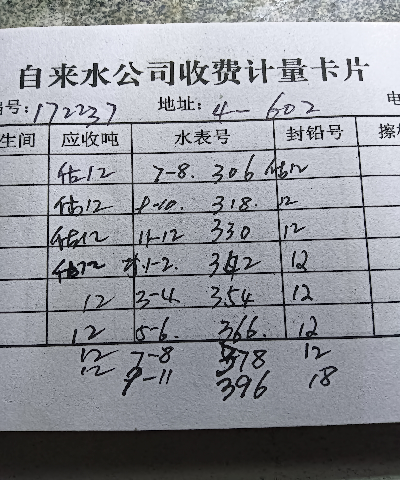 自来水公司收费计量卡片
编号:172237 地址:4-602 电
生间 应收吨 水表号 封铅号 擦
估12 7-8. 306 估12
估12 9-10. 318. 12
估12 11-12 330 12
估12 1-2. 342 12
12 3-4. 354 12
12 5-6. 366. 12
12 7-8 378 12
12 9-11 396 18